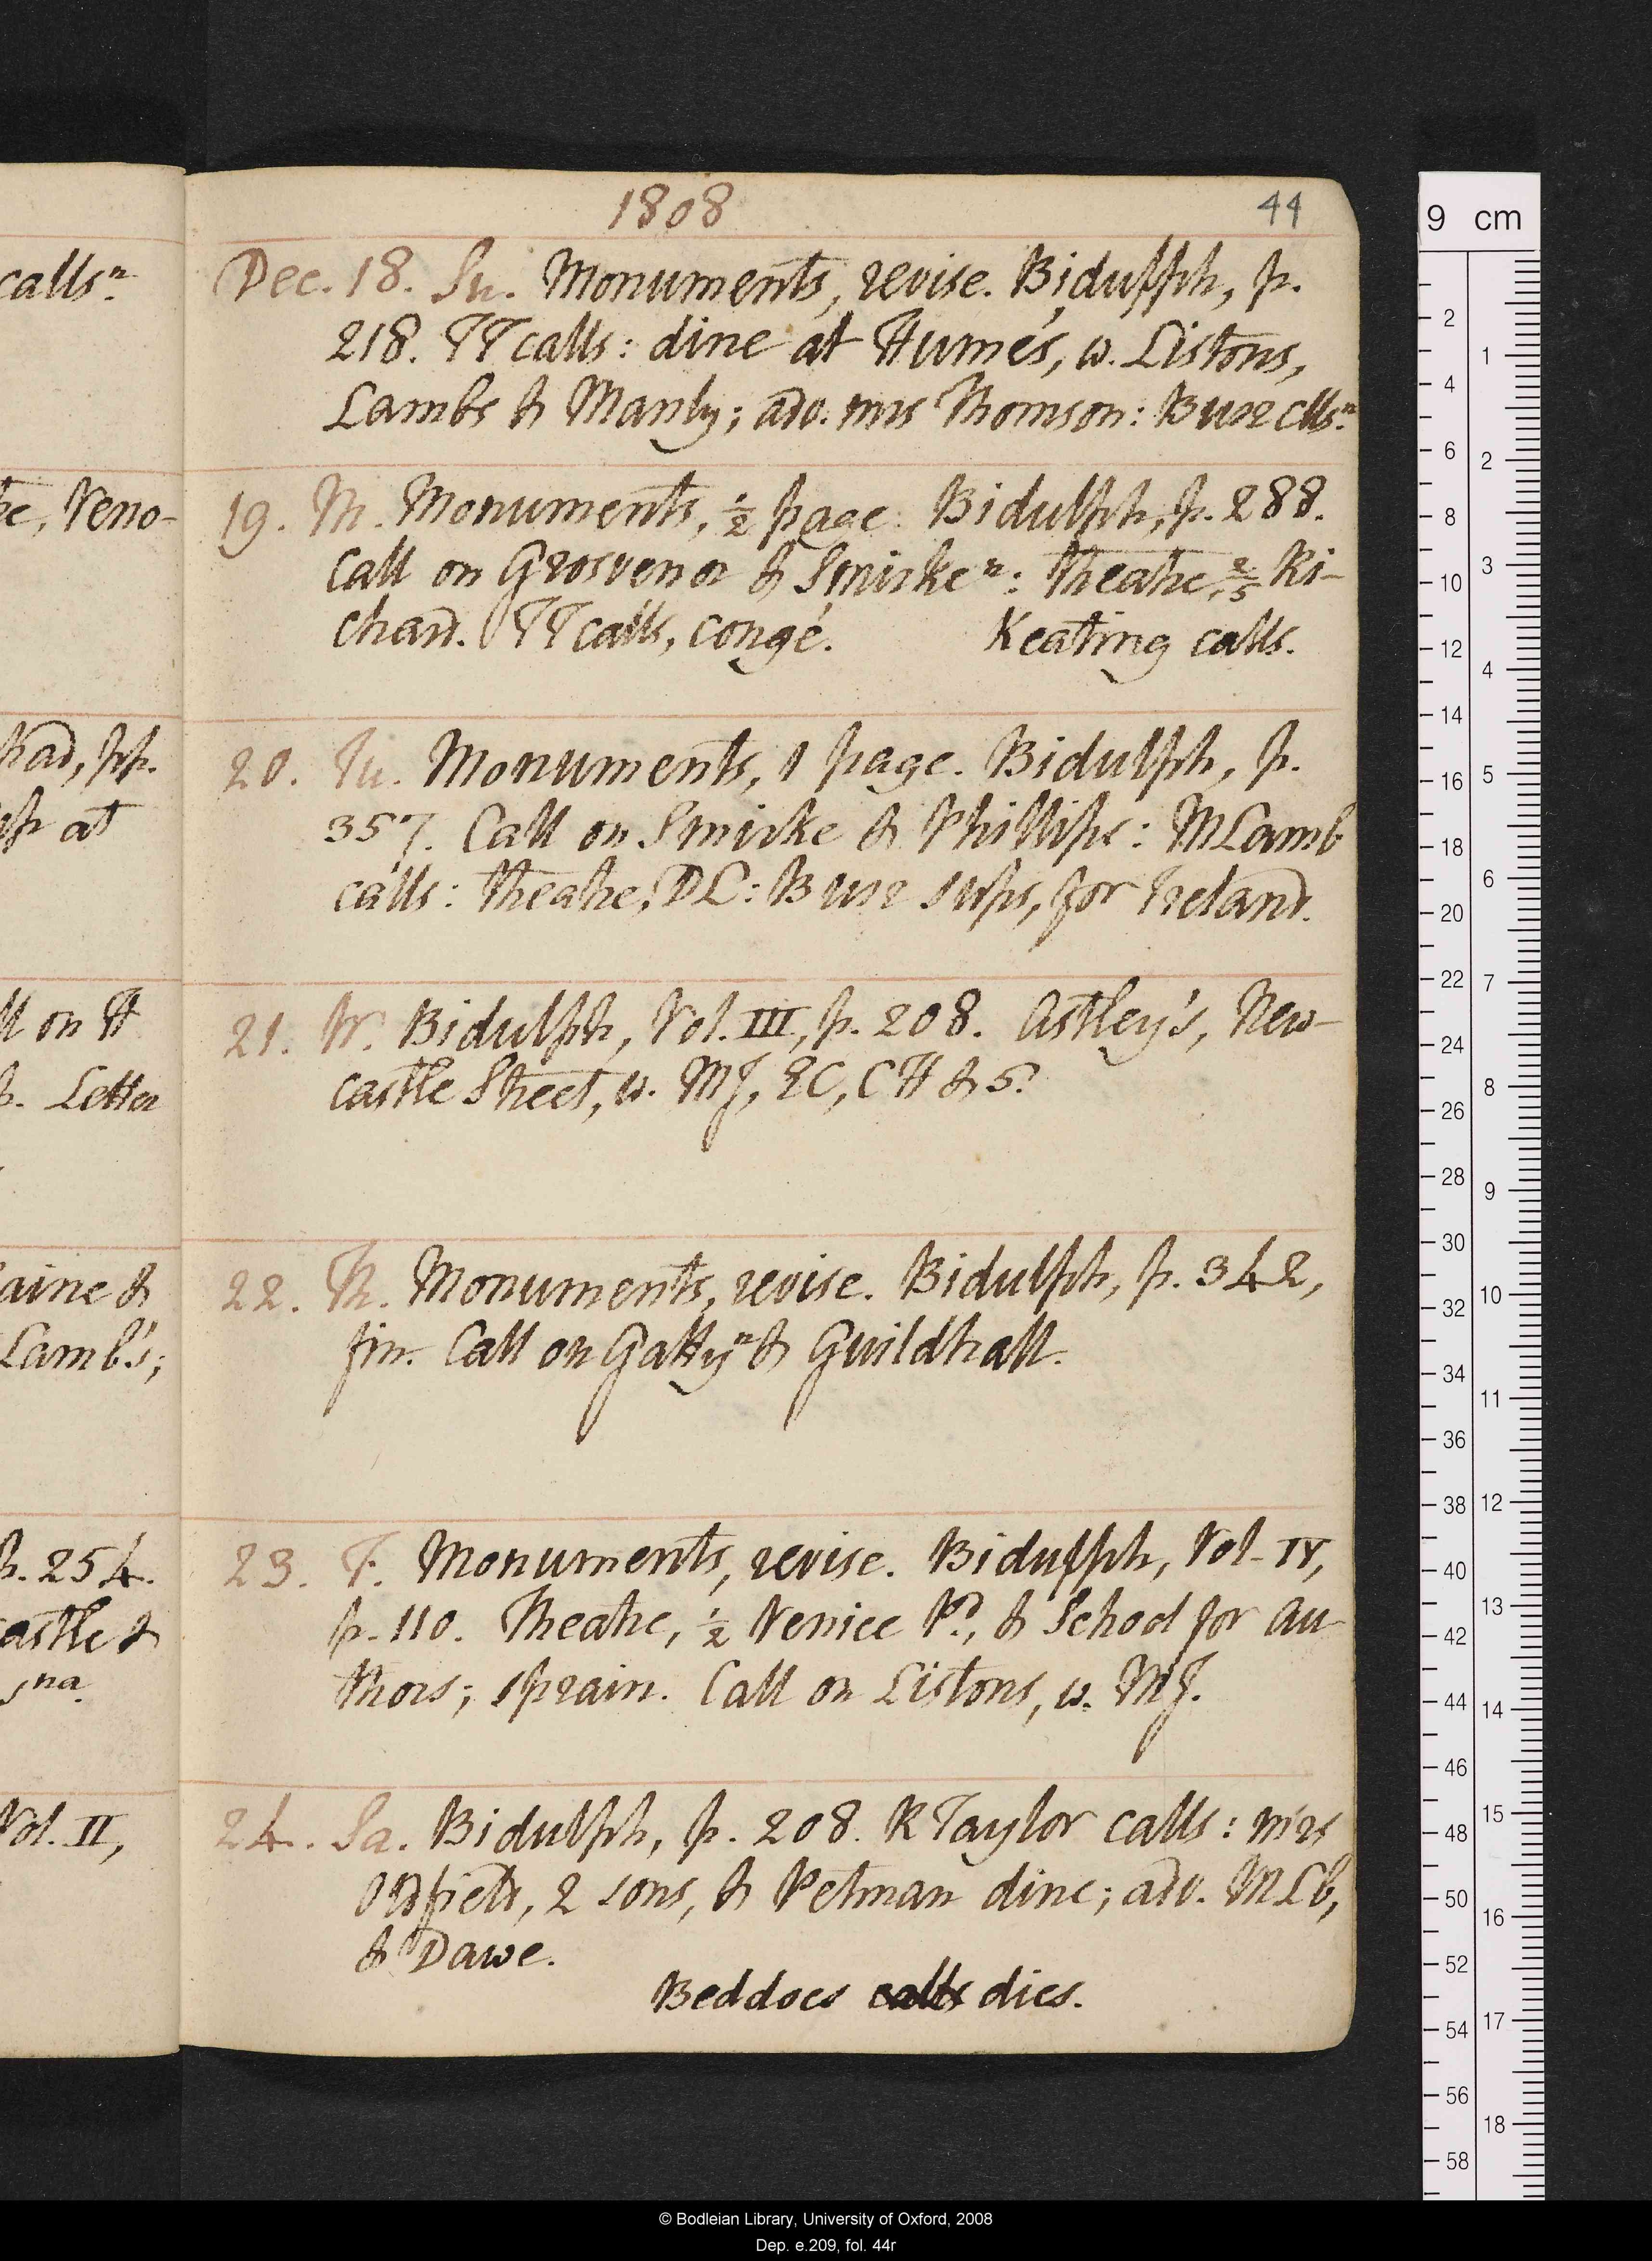 calls n.
e, Veno-
had, pp.
at
ll on H
p. Letter
aine &
Lamb's;
p. 254.
astle &
s na.
Vol. II,
1808
44
Dec. 18. Su. Monuments, revise. Bidulph, p.
218. TT calls: dine at Hume's, w. Listons,
Lambs & Manly; adv. mrs Thomson: Burr clls n.
19. M. Monuments, ½ page. Bidulph, p. 288.
Call on Grosvenor & Smirke n: theatre, 2/5 Ri-
chard. TT calls, congé. Keating calls.
20. Tu. Monuments, 1 page. Bidulph, p.
357. Call on Smirke & Phillips: MLamb
calls: theatre, DL: Burr sups, for Ireland.
21. W. Bidulph, Vol. III, p. 208. Astley's, New-
castle Street, w. MJ, EC, CH & 5?
22. Th. Monuments, revise. Bidulph, p. 342,
fin. Call on Gally n & Guildhall.
23. F. Monuments, revise. Bidulph, Vol. IV,
p. 110. Theatre, ½ Venice Pd., & School for Au-
thors; sprain. Call on Listons, w. MJ.
24. Sa. Bidulph, p. 208. R Taylor calls: mrs
Oldfield, 2 sons, & Petman dine; adv. MLb,
& Dawe.
Beddoes calls dies.
9 cm
2
4
6
8
10
12
14
16
18
20
22
24
26
28
30
32
34
36
38
40
42
44
46
48
50
52
54
56
58
1
2
3
4
5
6
7
8
9
10
11
12
13
14
15
16
17
18
© Bodleian Library, University of Oxford, 2008
Dep. e.209, fol. 44r